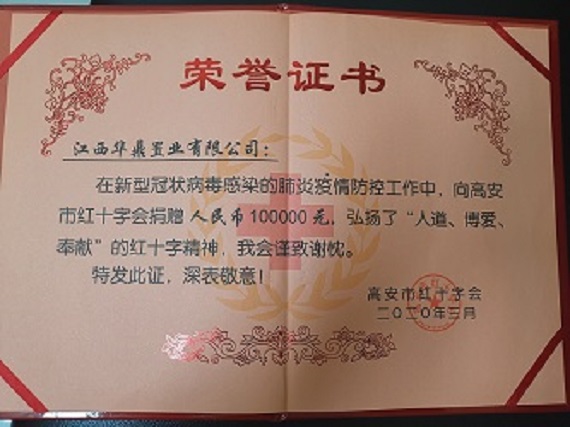 荣誉证书
江西华鼎置业有限公司：
在新型冠状病毒感染的肺炎疫情防控工作中，向高安
市红十字会捐赠人民币100000元，弘扬了“人道、博爱、
奉献”的红十字精神，我会谨致谢忱。
特发此证，深表敬意！
高安市红十字会
二〇二〇年三月